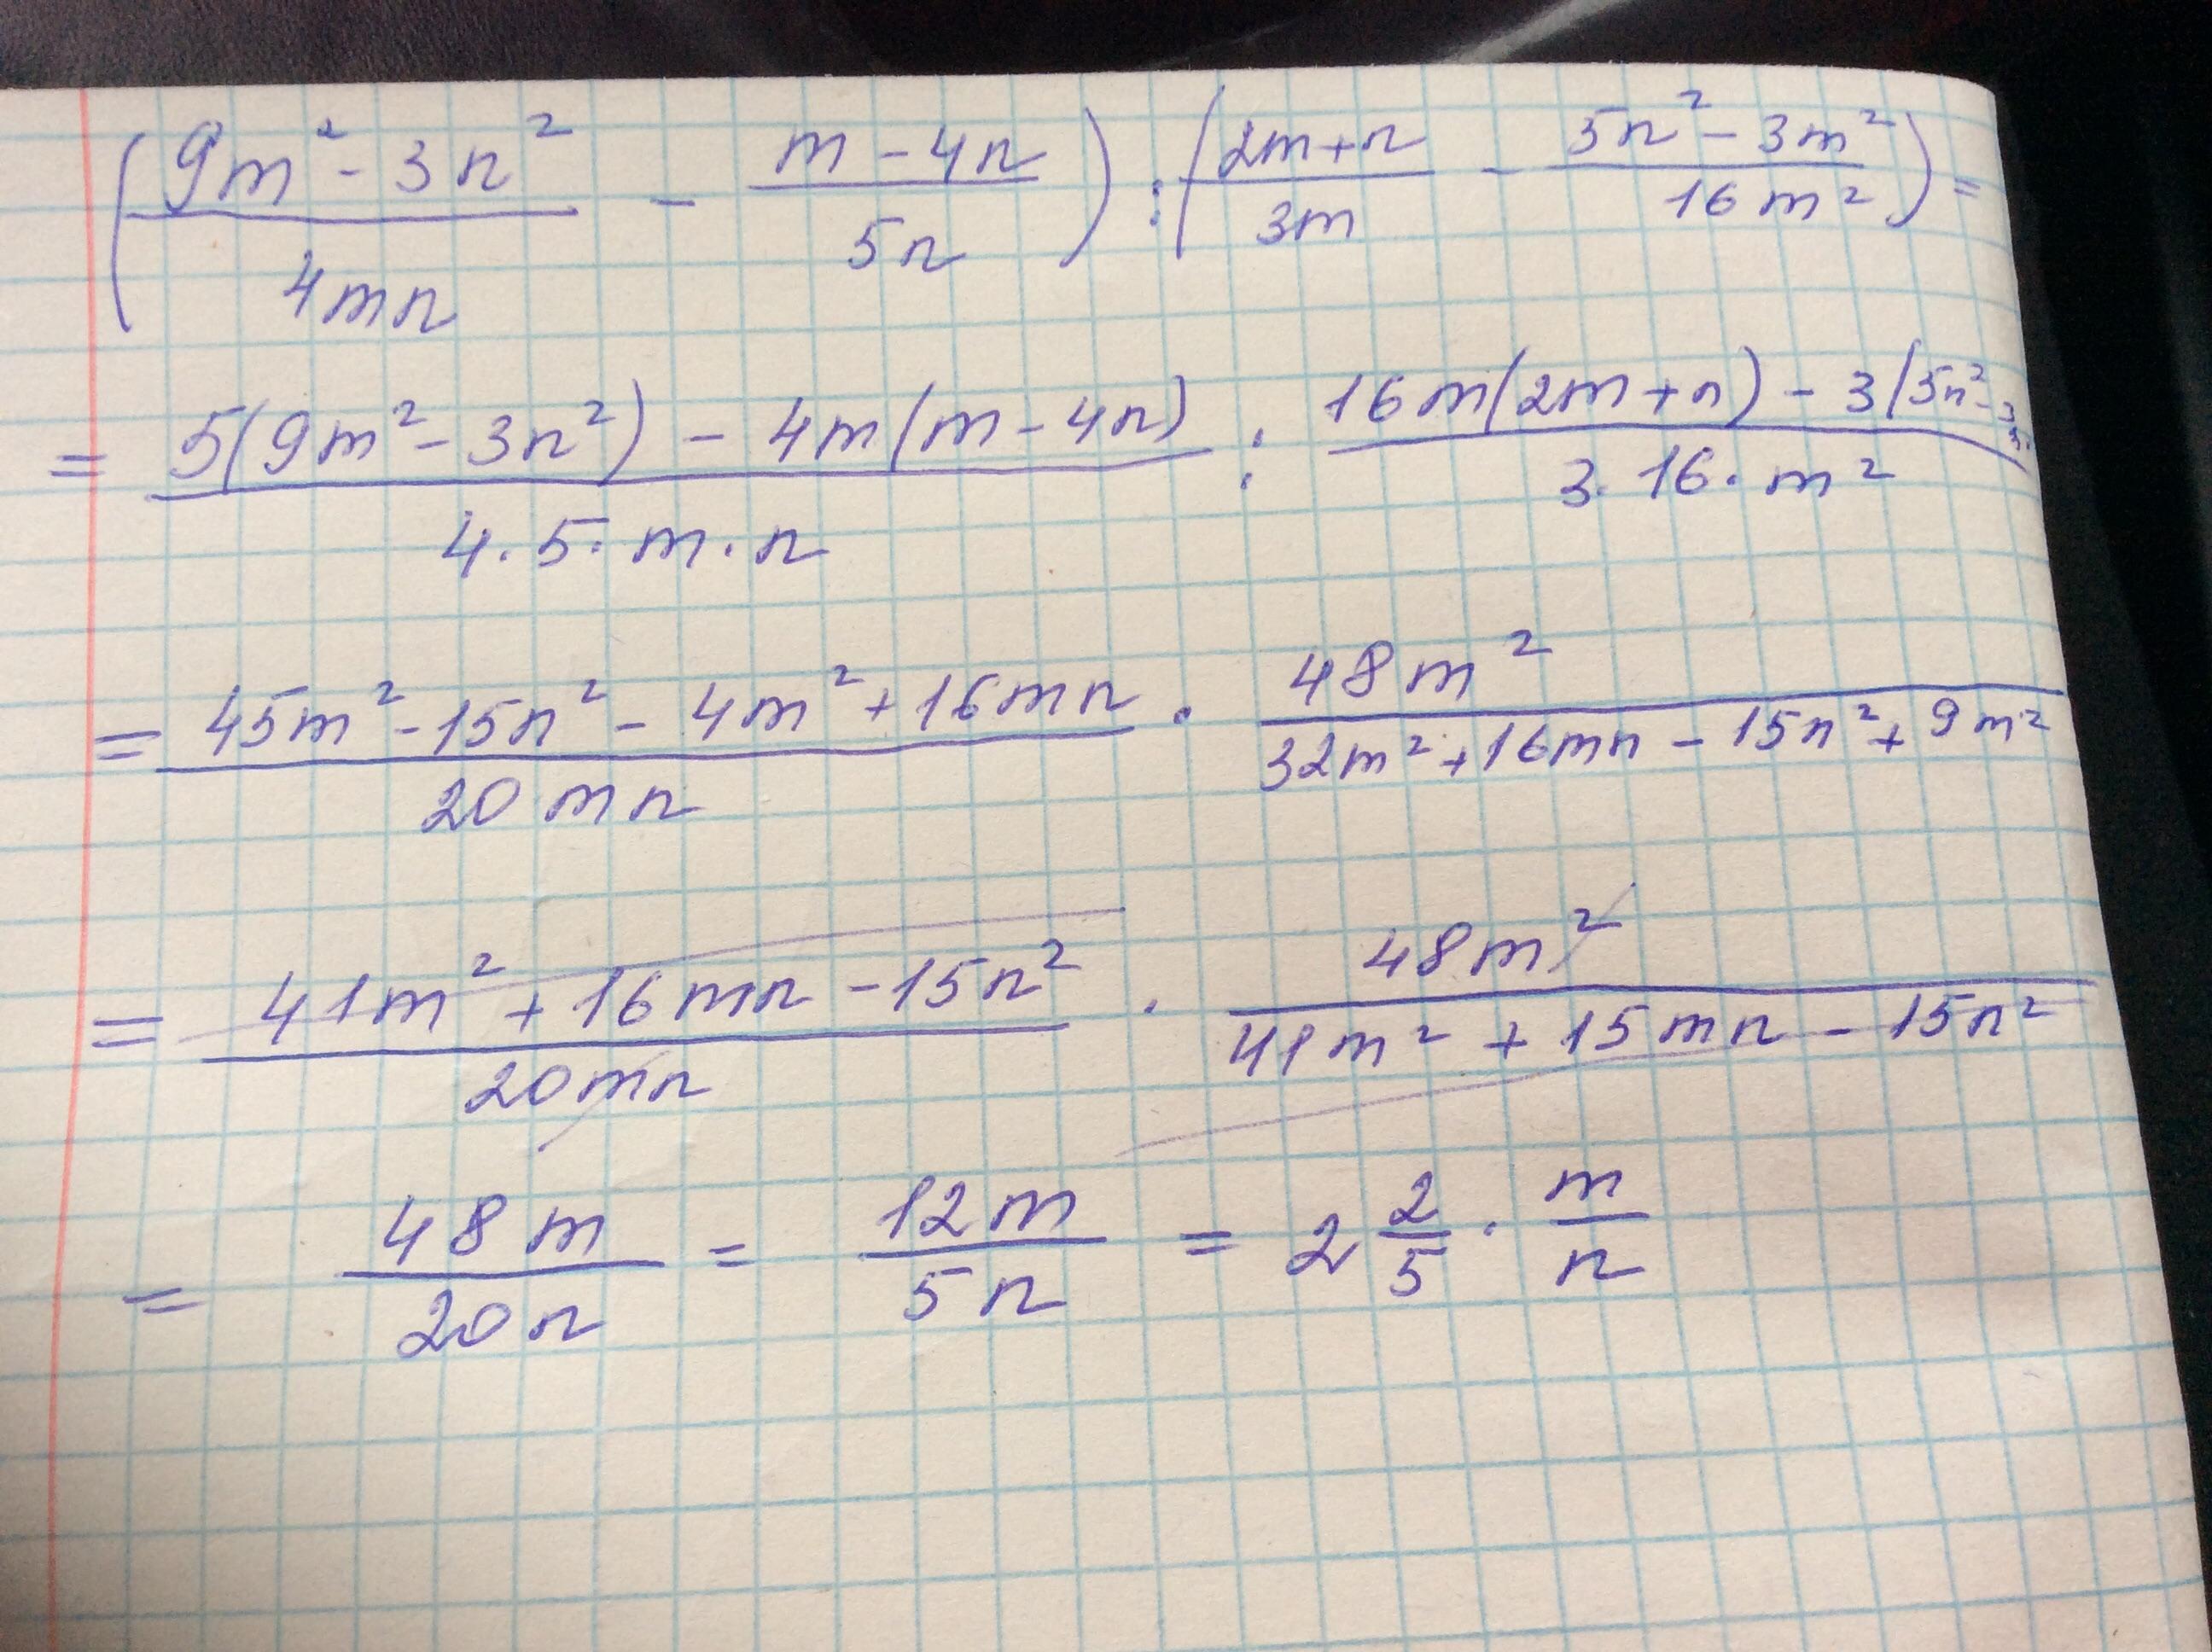 (9m² - 3n² / 4mn - m - 4n / 5n) : (2m + n / 3m - 5n² - 3m² / 16m²) =
= 5(9m² - 3n²) - 4m(m - 4n) / 4 · 5 · m · n : 16m(2m + n) - 3(5n² - 3 / 3 · 16 · m²
= 45m² - 15n² - 4m² + 16mn / 20mn · 48m² / 32m² + 16mn - 15n² + 9m²
= 41m² + 16mn - 15n² / 20mn · 48m² / 41m² + 15mn - 15n²
= 48m / 20n = 12m / 5n = 2 2/5 · m/n